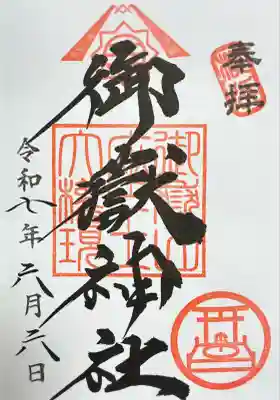 奉拝
御嶽神社
令和七年六月六日